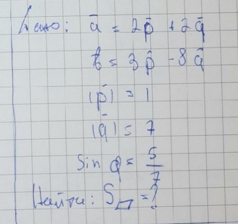 Дано: a̅ = 2p̅ + 2q̅
b̅ = 3p̅ - 8q̅
|p̅| = 1
|q̅| = 7
Sin φ = 5/7
Найти: S▱ = ?